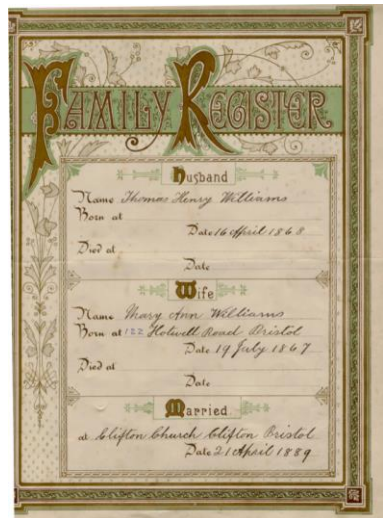 Family Register
Husband
Name Thomas Henry Williams
Born at
Date 16 April 1868
Died at
Date
Wife
Name Mary Ann Williams
Born at 122 Hotwell Road Bristol
Date 19 July 1867
Died at
Date
Married
at Clifton Church Clifton Bristol
Date 21 April 1889